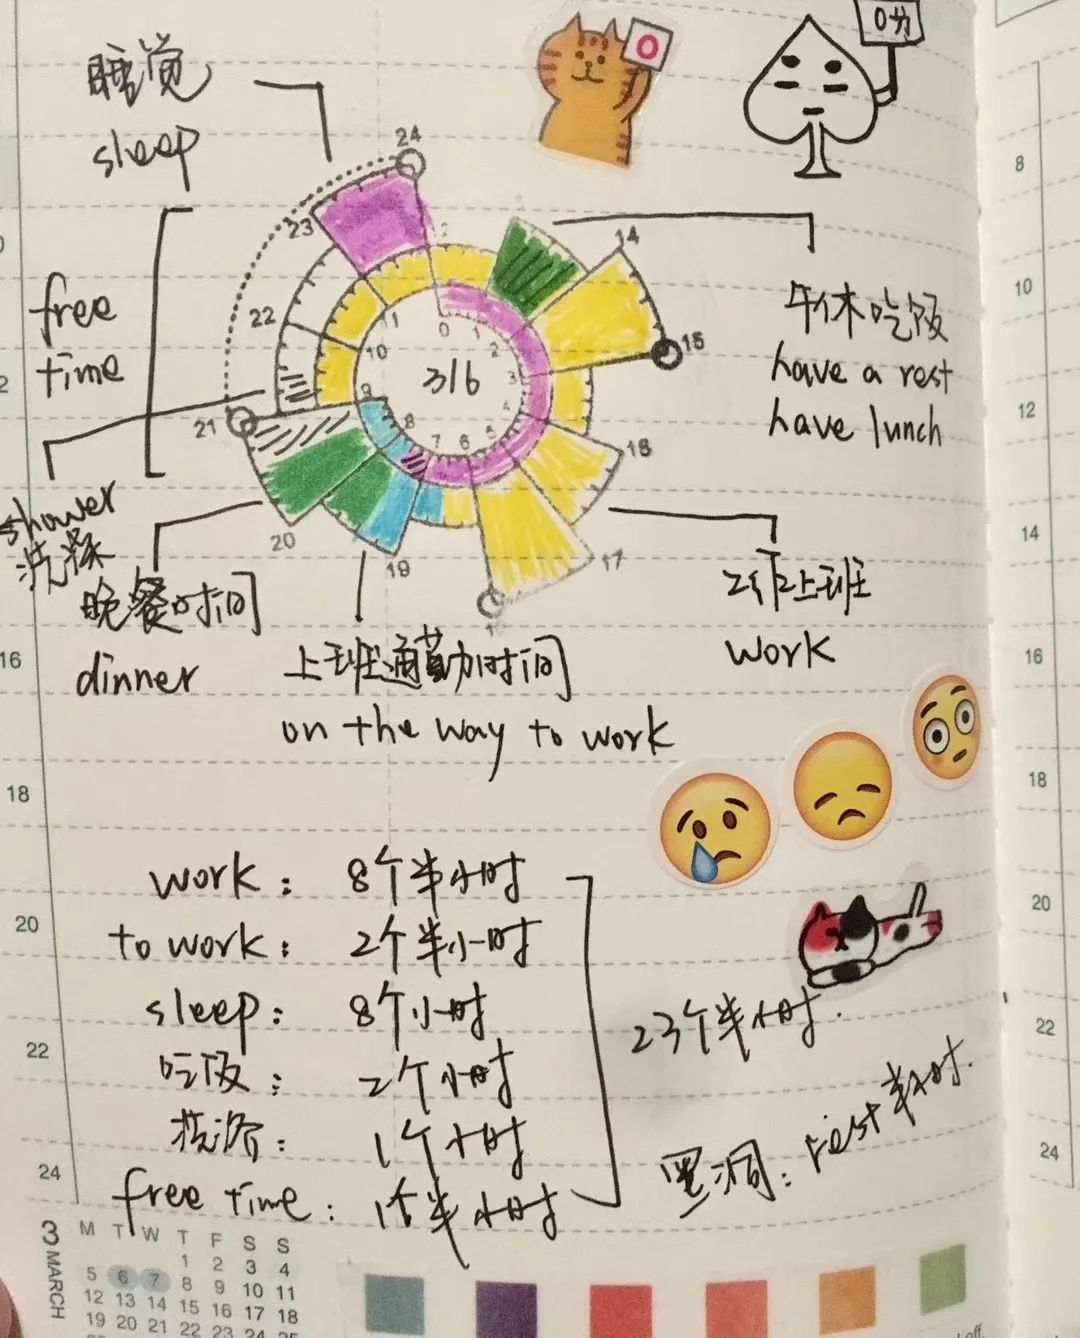 0分
睡觉
sleep
24
23
14
22
15
21
20
19
18
17
0
1
2
3
4
5
6
7
8
9
10
11
316
free
time
午休吃饭
have a rest
have lunch
shower
洗澡
晚餐时间
dinner
上班通勤时间
on the way to work
上班
work
work: 8个半小时
to work: 2个半小时
sleep: 8个小时
吃饭: 2个小时
洗浴: 1个小时
free time: 1个半小时
23个半小时.
黑洞: rest半小时.
16
18
20
22
24
8
10
12
14
16
18
20
22
24
3 MARCH
M T W T F S S
1 2 3 4
5 6 7 8 9 10 11
12 13 14 15 16 17 18
19 20 21 22 23 24 25